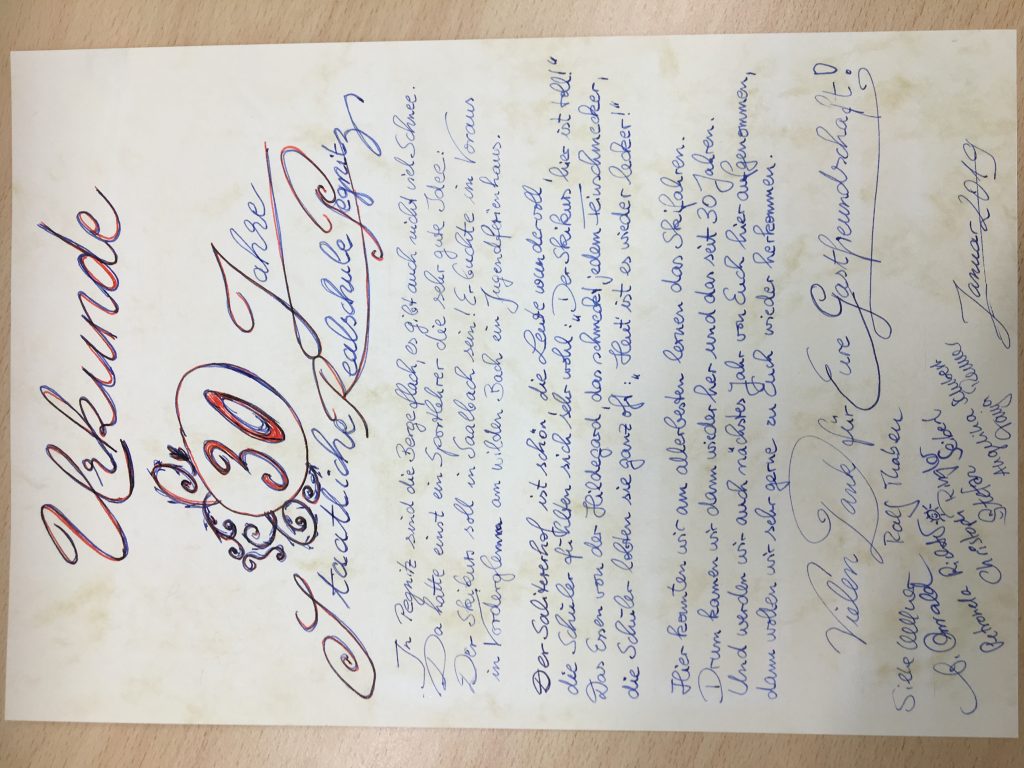 Urkunde
30 Jahre
Staatliche Realschule Pegnitz
In Pegnitz sind die Berge flach, es gibt auch nicht viel Schnee.
Da hatte einst ein Sportlehrer die sehr gute Idee:
Der Skikurs soll in Saalbach sein! Er buchte im Voraus
in Vorderglemm am wilden Bach ein Jugendferienhaus.
Der Salitererhof ist schön die Leute wundervoll
die Schüler fühlten sich sehr wohl: "Der Skikurs hier ist toll!"
Das Essen von der Hildegard das schmecket jedem Feinschmecker,
die Schüler lobten sie ganz oft: "Heut ist es wieder lecker!"
Hier konnten wir am allerbesten lernen das Skifahren.
Drum kamen wir dann wieder her und das seit 30 Jahren.
Und werden wir auch nächstes Jahr von Euch hier aufgenommen,
dann wollen wir sehr gerne zu Euch wieder herkommen.
Vielen Dank für Eure Gastfreundschaft!
Ralf Thaben
Januar 2019